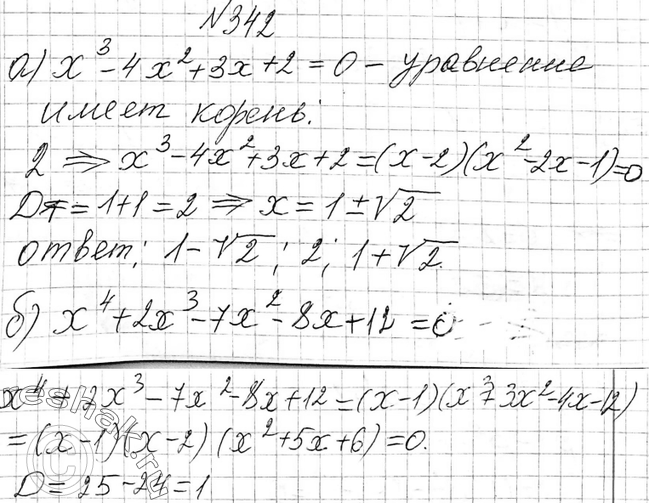 №342
а) x³-4x²+3x+2=0 - уравнение
имеет корень:
2 ⇒ x³-4x²+3x+2=(x-2)(x²-2x-1)=0
D₁=1+1=2 ⇒ x=1±√2
ответ: 1-√2; 2; 1+√2.
б) x⁴+2x³-7x²-8x+12=0
x⁴+2x³-7x²-8x+12=(x-1)(x³+3x²-4x-12)
=(x-1)(x-2)(x²+5x+6)=0.
D=25-24=1